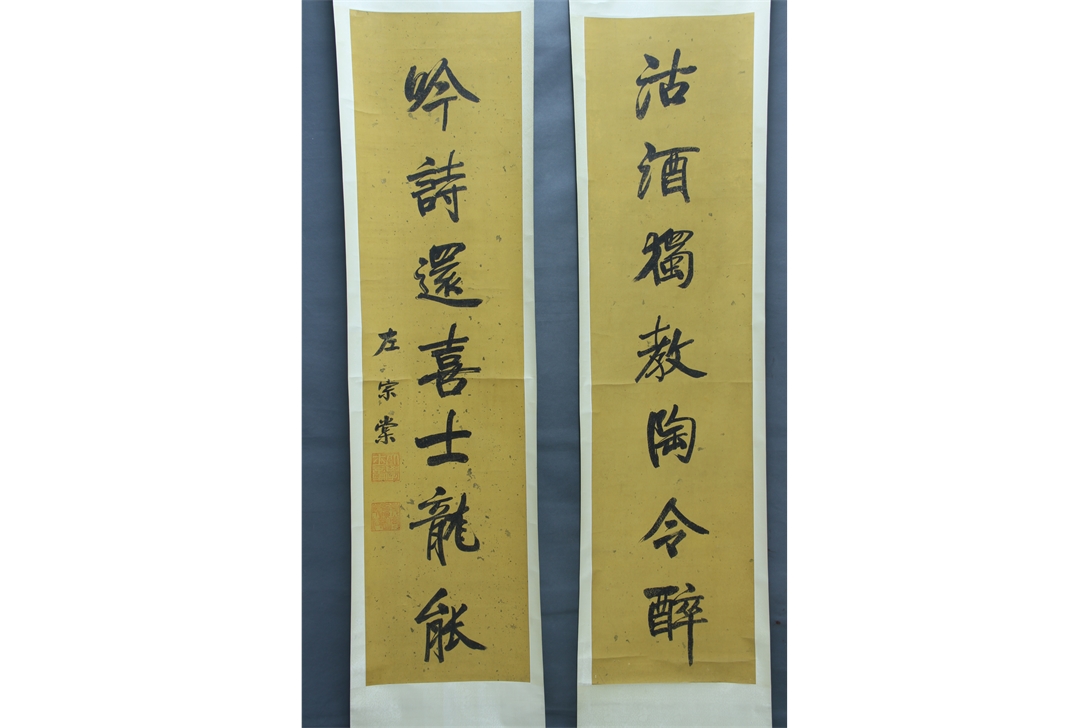 沽酒獨教陶令醉
吟詩還喜士龍能
左宗棠